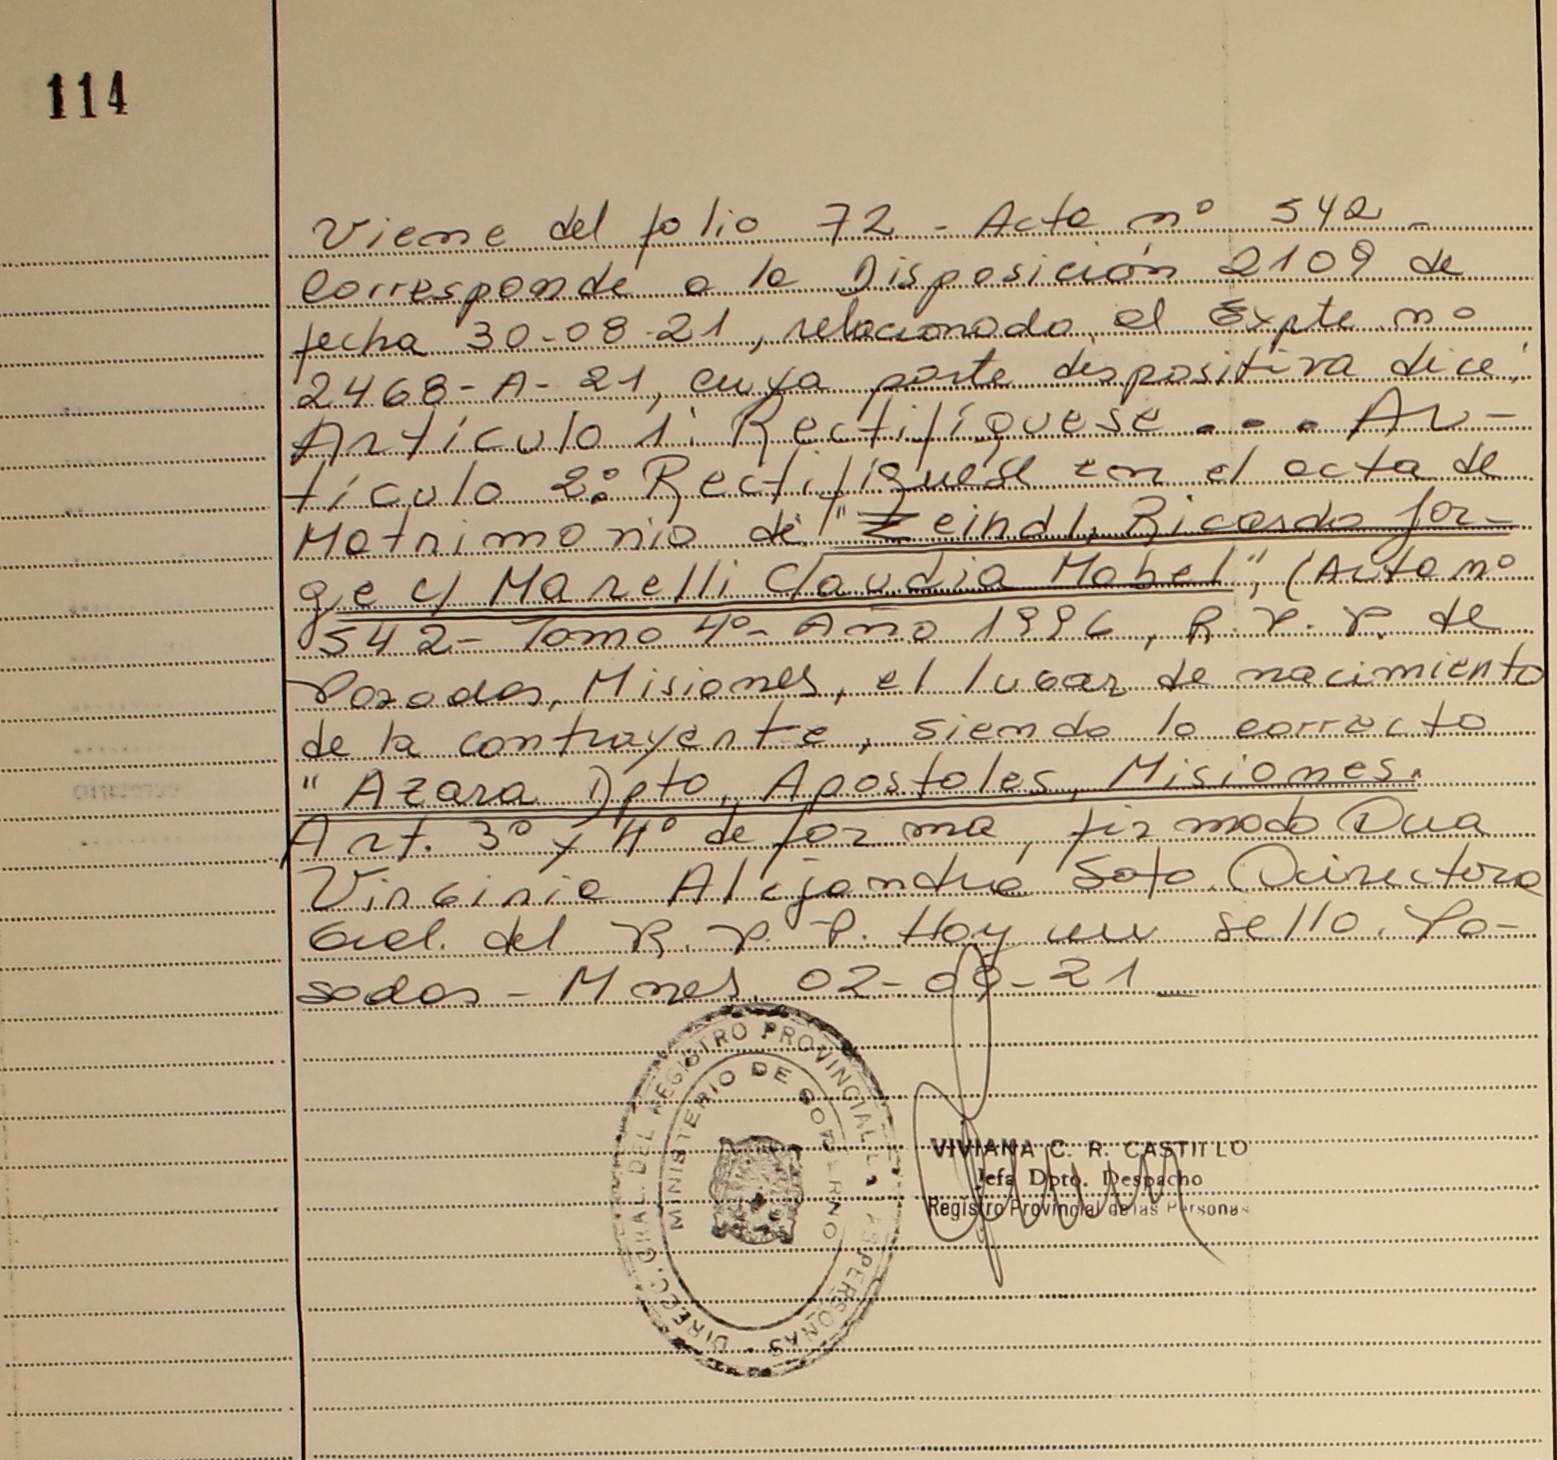 114
Viene del folio 72 - Acta nº 542 -
Corresponde a la Disposición 2109 de
fecha 30-08-21, relacionada al Expte nº
2468-A-21, cuya parte dispositiva dice:
Artículo 1º: Rectifíquese . . . Ar-
tículo 2º: Rectifíquese en el acta de
Matrimonio de: "Zeindl, Ricardo Jor-
ge c/ Marelli Claudia Mabel", (Acta nº
542 - Tomo 4º - Año 1996, R. P. P. de
Posadas, Misiones, el lugar de nacimiento
de la contrayente, siendo lo correcto
"Azara Dpto. Apostoles, Misiones.
Art. 3º y 4º de forma, firmado Dra
Virginia Alejandra Soto. Directora
Gral. del R. P. P. Hay un sello. Po-
sadas - Mnes, 02-09-21
DIRECC. GRAL. DEL REGISTRO PROVINCIAL DE LAS PERSONAS
MINISTERIO DE GOBIERNO
VIVIANA C. R. CASTILLO
Jefa Dpto. Despacho
Registro Provincial de las Personas